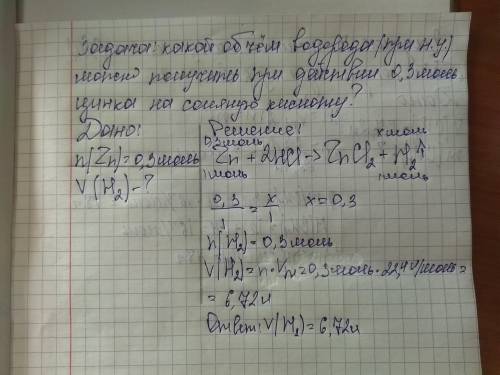 Задача: какой объём водорода (при н.у)
можно получить при действии 0,3 моль
цинка на соляную кислоту?
Дано:
n(Zn)=0,3моль
V(H2)-?
Решение:
0,3моль х моль
Zn + 2HCl -> ZnCl2 + H2↑
1моль 1моль
0,3/1 = x/1 x=0,3
n(H2)=0,3моль
V(H2)=n·Vm=0,3моль·22,4л/моль=
= 6,72л
Ответ: V(H2)=6,72л